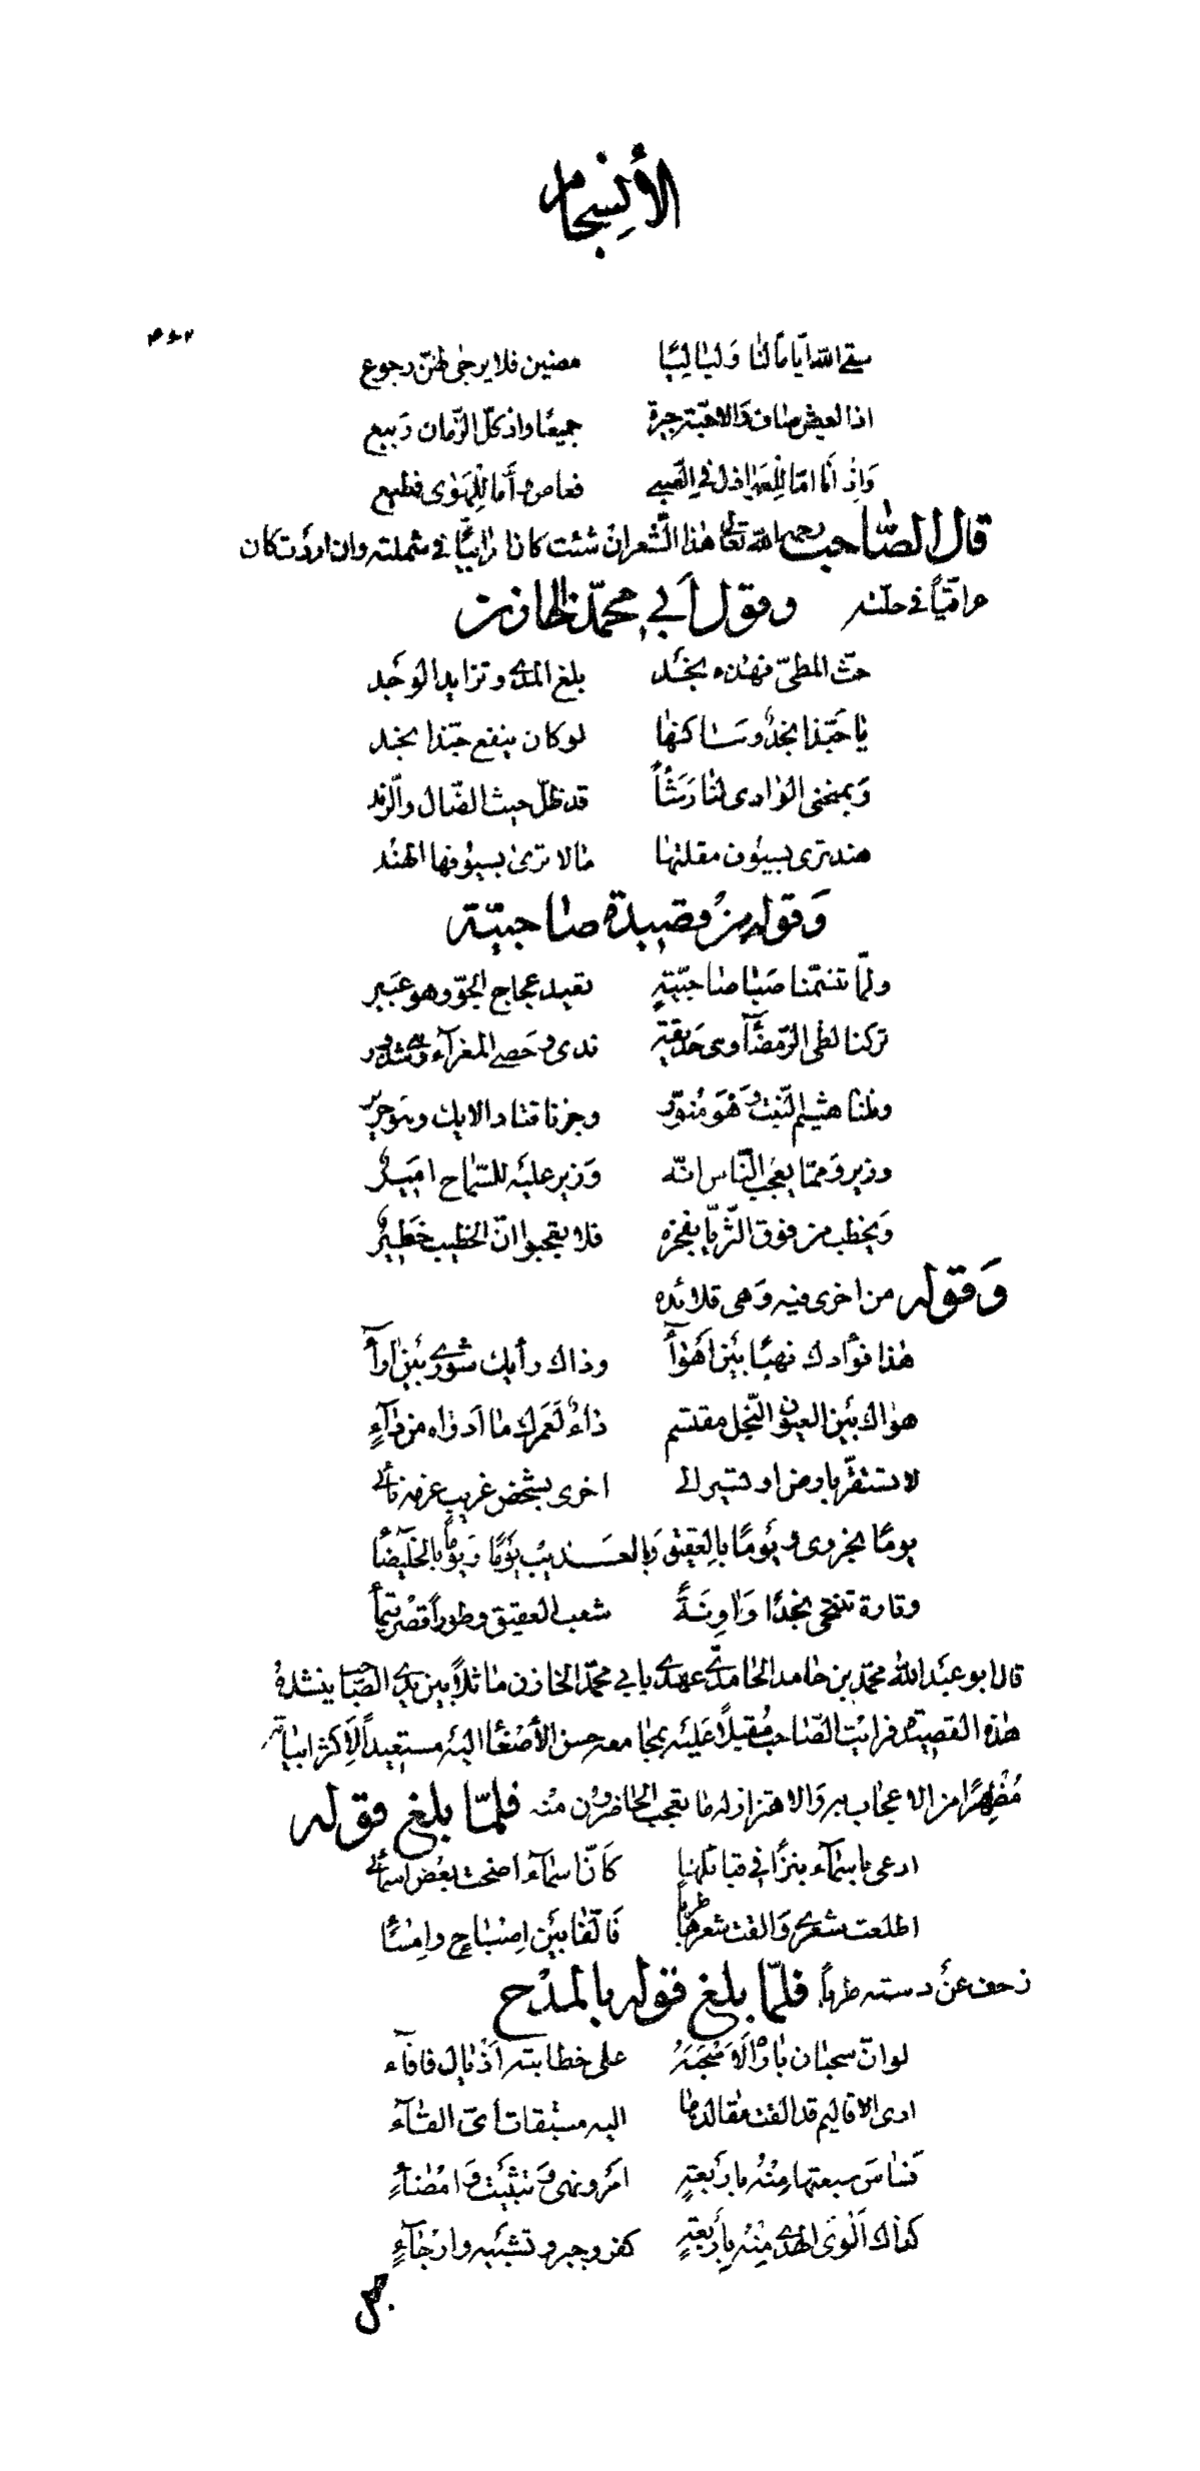 الأنسجام
۴۶۲
سقى الله أيامًا لنا وَلياليًا مضين فلا يرجى لهنّ رجوع
اذ العيش صاف وَالاحبّة جيرة جميعًا واذ كلّ الزّمان رَبيع
وَإذ أنا امّا للعواذل في الصّبى فعاصٍ وأما للهوى فطيع
قال الصّاحب رحمه الله تعالى هٰذا الشّعر ان شئت كان اعرابيًّا في شملته وان اردت كان
عراقيّاً في حلّته وقول أبي محمّد الخازن
حثّ المطيّ فهٰذه نجد بلغ المدى وتزايد الوَجد
يا حَبّذا نجدٌ وسَاكنها لو كان ينفع حبّذا نجد
وَبمنحنى الوادى لنا رَشأً قد ظلّ حيث الضّال والرّند
هند ترى بسيوف مقلتها ما لا ترى بسيوفها الهند
وَقوله من قصيدة صاحبيّة
ولمّا تنسّمنا صَبا صاحبيّةٍ تعيد عجاج الجوّ وهو عَبير
تركنا لظى الرّمضآ وهى حَديقة ندى وحَصى المعزآء وهى شذور
وظنا هشيم النّبت وَهَو مُنوّر وجزنا قتاد الايك وهَو حرير
وزير وَممّا يعجب النّاس انّه وَزير عليه للسّماح اميرٌ
وَيخطب من فوق الثّريّا بفخره فلا يعجبوا انّ الخطيب خَطيرٌ
وَقوله من اخرى فيه وَهى قلائده
هٰذا فؤادك نهبًا بَين اَهَوآءِ وذاك رأيك شورى بَين ارآءِ
هواك بَين العيون النّجل مقتسم دٰاءٌ لَعَمرك ما ادوٰاه من دٰآءٍ
لا تستقرّ بارض او تسير الى اخرى بشخص غريب عزمه نائى
يومًا بحزوى وَيَومًا بالعقيق وَبالعَـــذيب يَومًا وَيومًا بالخليصآءِ
وتارة تنتحى نجدًا وَاٰوِنَةً شعب العقيق وطوراً قَصْر تيمآءِ
قال ابو عبد الله محمّد بن حامد الحامدى عهدى بابي محمّد الخازن ماثلاً بين يدى الصّاحب ينشدهُ
هٰذه القصيدة فرايت الصّاحب مُقبلاً عَليَه بمجامعه حسن الأصغآء اليَه مستعيداً لأكثر ابياته
مُظْهِرًا من الاعجاب به وَالاهتزاز له ما يعجب الحاضرون منه فلمّا بلغ قوله
ادعى باسمآء نبزًا في قبائلها كَانّ اسمآء اضحت بعْض اسمآئى
اطلعت شعرى وَالقت شعرها طربًا فَالّفا بَين اِصْبَاحٍ واِمْسآءِ
زحف عنْ دسته طرباً، فلمّا بلغ قوله بالمدْح
لو انّ سحبان باراه لاَ سْحَبَهُ على خطابته اَذْيال فافآءِ
ارى الاقاليم قد القت مقالدها اليه مستبقات أىّ القآءِ
فساسَ سبعتها مِنْهُ بأربعةٍ امَرٍ ونهىٍ وَتثبيت وَامْضآءٍ
كذاك اَلوى الهدى مِنْهُ بأربعةٍ كفر وجبر وتشبيه وارْجآءٍ